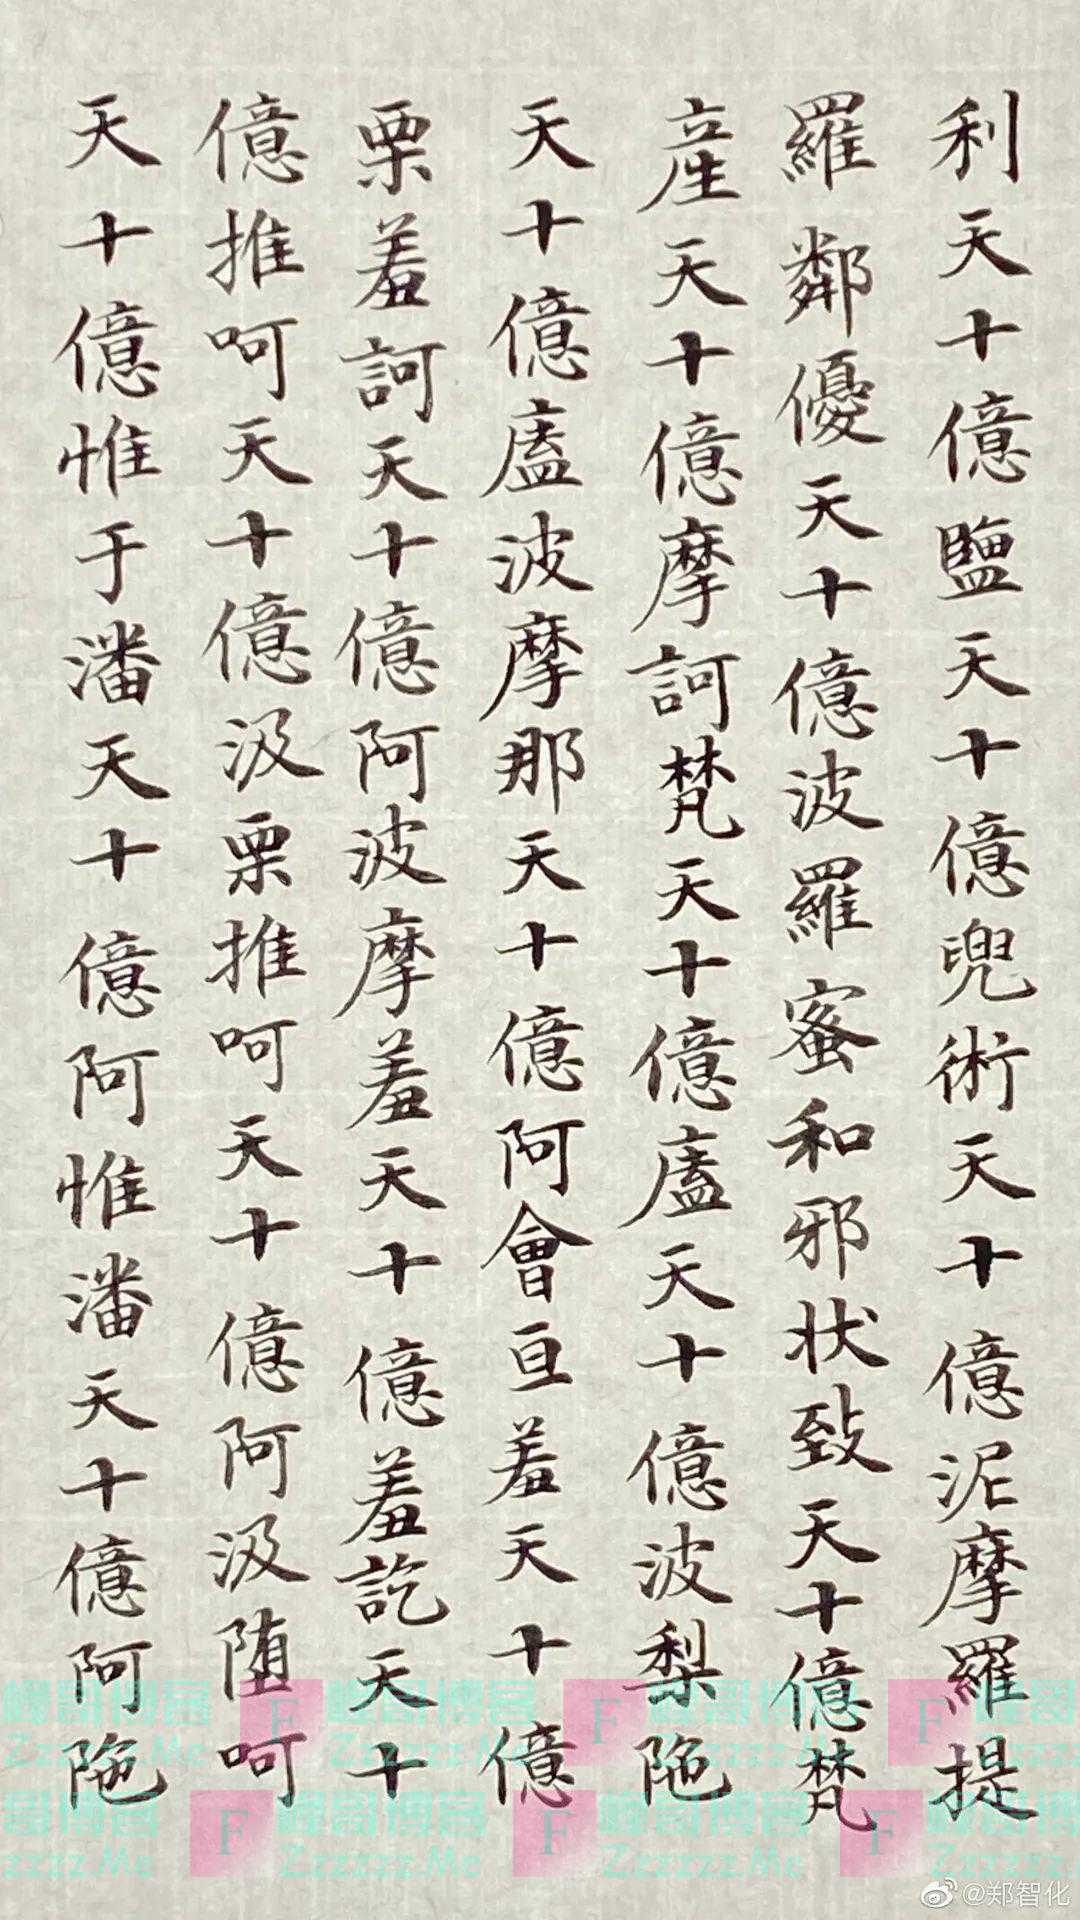 利天十億鹽天十億兜術天十億泥摩羅提
羅鄰優天十億波羅蜜和邪状致天十億梵
產天十億摩訶梵天十億廬天十億波梨陁
天十億廬波摩那天十億阿會亘羞天十億
栗羞訶天十億阿波摩羞天十億羞訖天十
億推呵天十億汲栗推呵天十億阿汲堕呵
天十億惟于潘天十億阿惟潘天十億阿陁
峰哥博客
Zzzzzz.Me
@郑智化